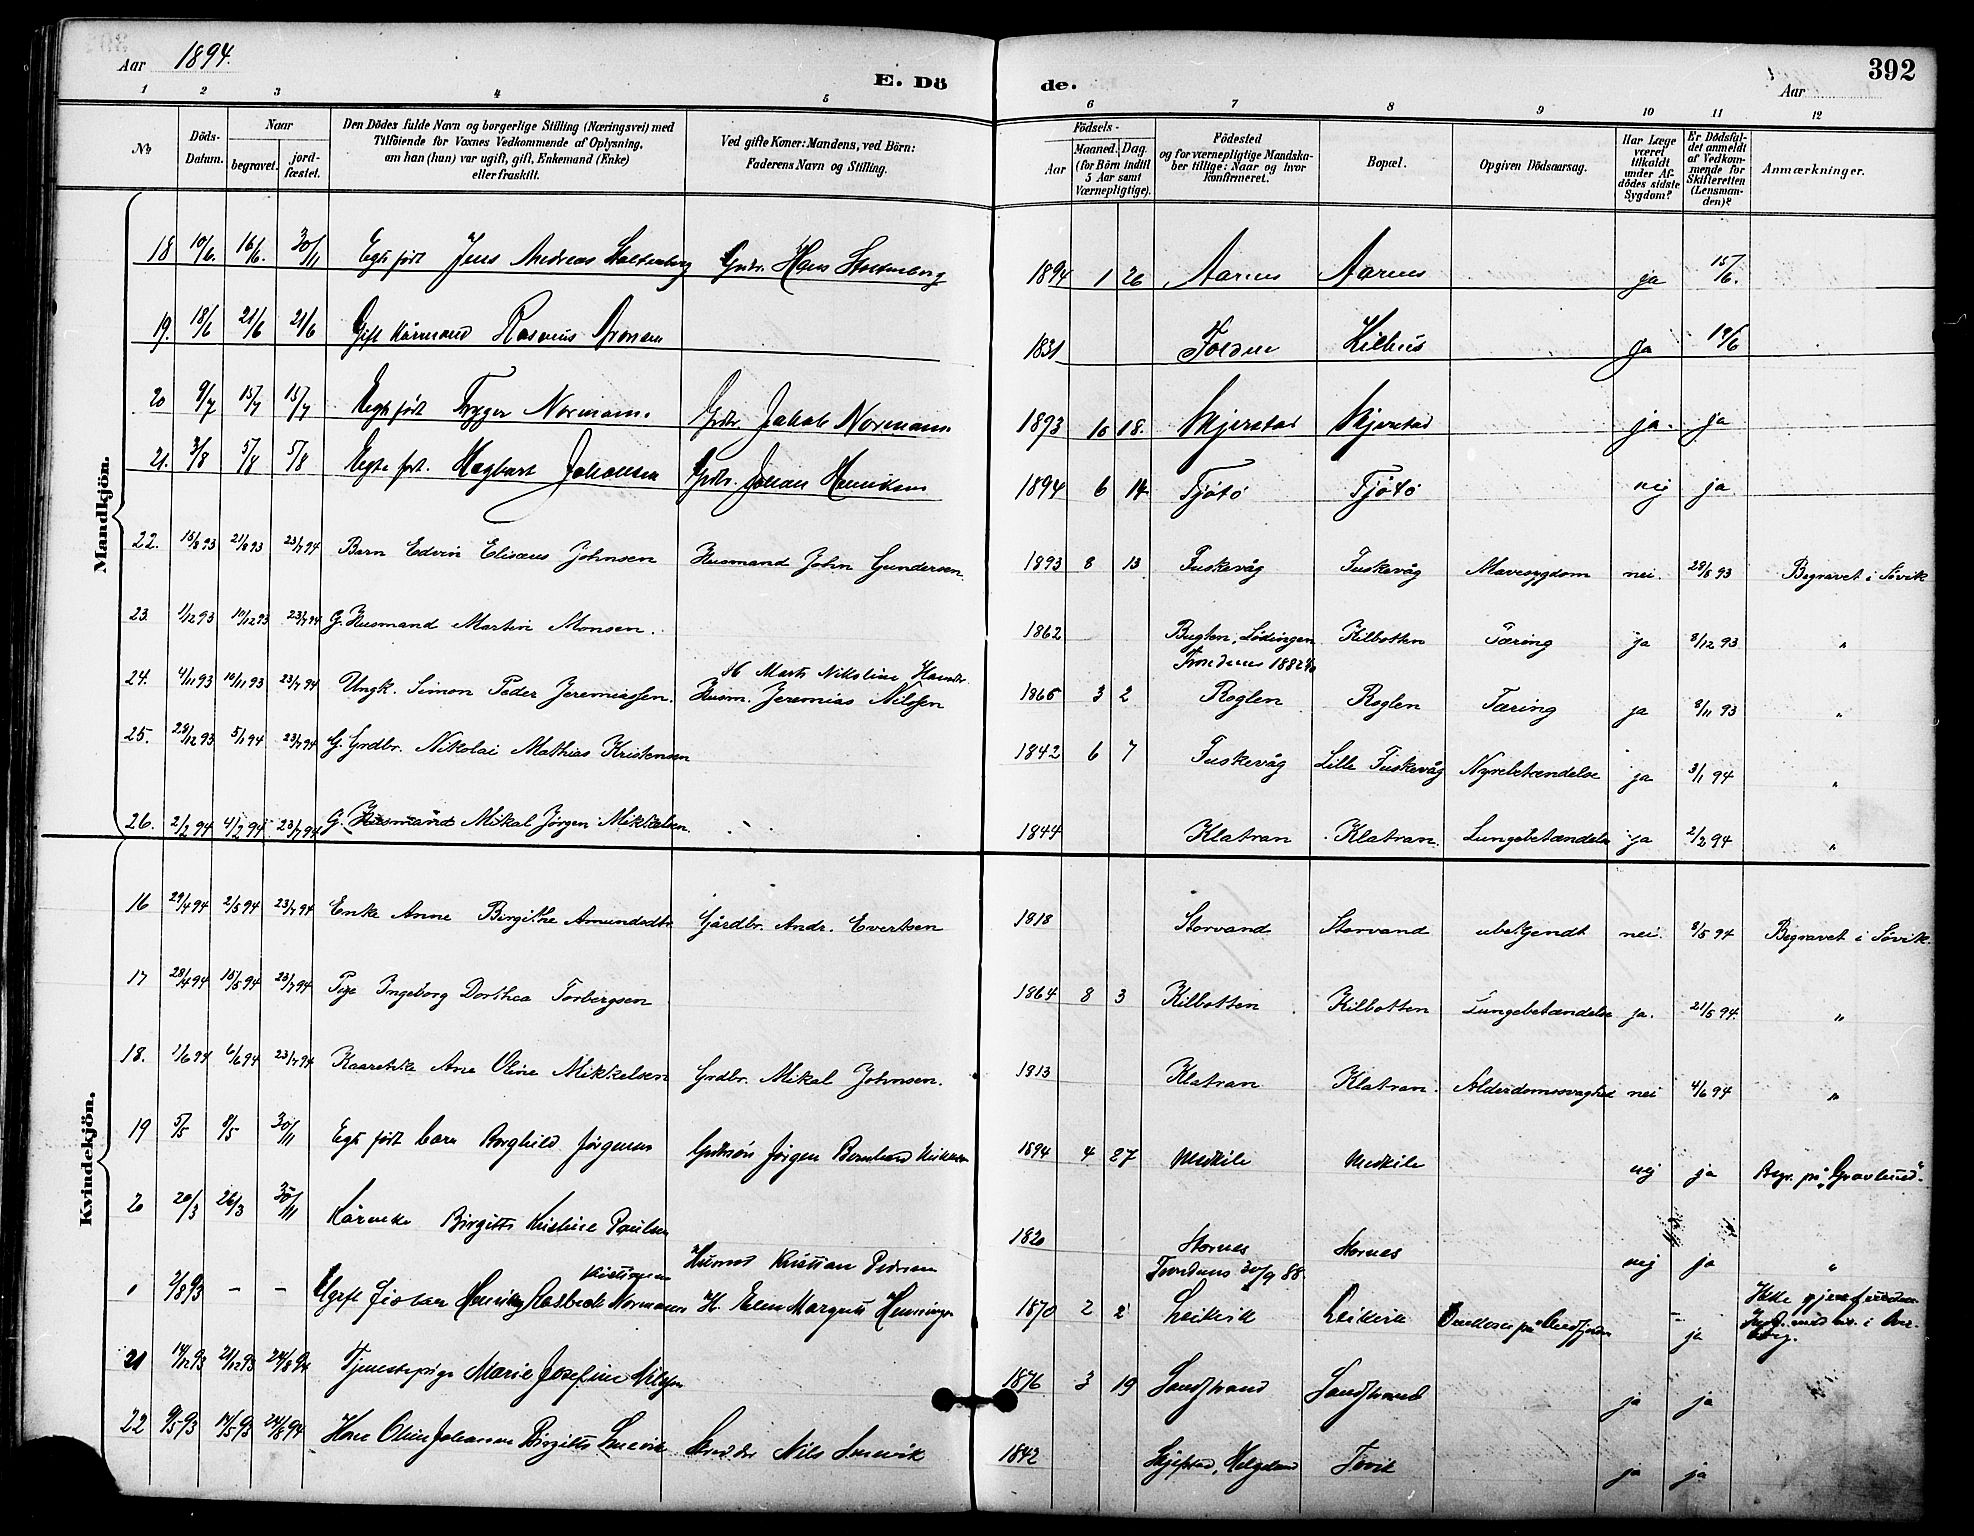 Aar 1894.
E. Döde.
Aar
392
1 2 3 4 5 6 7 8 9 10 11 12
No
Döds-Datum.
Naar
begravet.
jord-fæstet.
Den Dödes fulde Navn og borgerlige Stilling (Næringsvei) med
Tilföiende for Voxnes Vedkommende af Oplysning,
om han (hun) var ugift, gift, Enkemand (Enke)
eller fraskilt.
Ved gifte Koner: Mandens, ved Börn:
Faderens Navn og Stilling.
Födsels-
Aar
Maaned. Dag.
(for Börn indtil
5 Aar samt
Værnepligtige).
Födested
og for værnepligtige Mandska-
ber tillige: Naar og hvor
konfirmeret.
Bopæl.
Opgiven Dödsaarsag.
Har Læge
været
tilkaldt
under Af-
dödes sidste
Sygdom?
Er Dödsfal-
det anmeldt
af Vedkom-
mende for
Skifteretten
(Lensman-
den)?
Anmærkninger.
Mandkjön.
18 10/6. 16/6. 30/11 Egte født Jens Andreas Stoltenberg Grdbr. Hans Stoltenberg 1894 1 26 Aarnes Aarnes ja 15/6.
19. 18/6 21/6 21/6 Gift Kårmand Rasmus Aronsen 1831 Folden Kilhus ja 19/6
20 9/7 15/7 15/7 Ægte født Trygve Normann. Grdbr. Jakob Normann 1893 10 18. Skjerstad Skjerstad ja. ja
21. 3/8 5/8 5/8 Ægte født. Hagbart Johansen Grdbr. Johan Henriksen 1894 6 14 Tjøtø Tjøtø nej ja
22. 15/8 93 21/8 93 23/7 94 Barn Edvin Elisæus Johnsen Husmand John Gundersen 1893 8 13 Fuskevåg Fuskevåg Mavesygdom nei. 28/8 93 Begravet i Søvik
23. 1/12 93 10/12 93 23/7 94 G. Husmand Martin Monsen. 1862 Lødingen Kilbotten Tæring ja 8/12 93 "
Trondenes 1882
24. 4/11 93 10/11 93 23/7 94 Ungk. Simon Peder Jeremiassen. Husm. Jeremias Nilssen 1865 3 2 Roglen Roglen Tæring ja 8/11 93 "
25. 28/12 93 5/1 94 23/7 94 G. Grdbr. Nikolai Mathias Kristensen 1842 6 7 Fuskevåg Lille Fuskevåg Nyrebetændelse ja 3/1 94 "
26. 2/2 94 4/2 94 23/7 94 G. Husmand Mikal Jørgen Mikkelsen. 1844 Klatran Klatran. Lungebetændelse ja 2/2 94 "
Kvindekjön.
16 29/4 94 2/5 94 23/7 94 Enke Anne Birgithe Amundsdtr. Gårdbr. Andr. Evertsen 1818 Storvand Storvand ubekjendt nei. 8/5 94 Begravet i Søvik.
17 28/4 94 15/5 94 23/7 94 Pige Ingeborg Dorthea Torbergsen 1864 8 3 Kilbotten Kilbotten Lungebetændelse ja. 21/5 94. "
18. 1/6 94 6/6 94 23/7 94 Kaarenke Ane Oline Mikkelsen Grdbr. Mikal Johnsen. 1813 Klatran Klatran. Alderdomssvaghed nei 4/6 94 "
19 5/5 8/5 30/11 Egte født barn Borghild Jørgensen Jørgen Bernhard 1894 4 27 Medkile Medkile nej ja Begr. på "Gravlund".
20 20/3 26/3 30/11 Kårenke Birgitte Kristine Paulsen 1820 Stornes Stornes nej ja "
Husmd Kristian Pedersen
Trondenes 30/9 88.
2/8 93 - - 1870 2 2 Leikvik Leikvik - ja Ikke
21 14/12 93 21/12 93 24/8 94 Tjenestepige Marie Josefine Nilssen 1876 3 19 Sandstrand Sandstrand ja ja
22 9/5 93 14/5 93 24/8 94 Kone Oline Johanna Birgitte Nils 1842 Helgeland Tovik ja ja